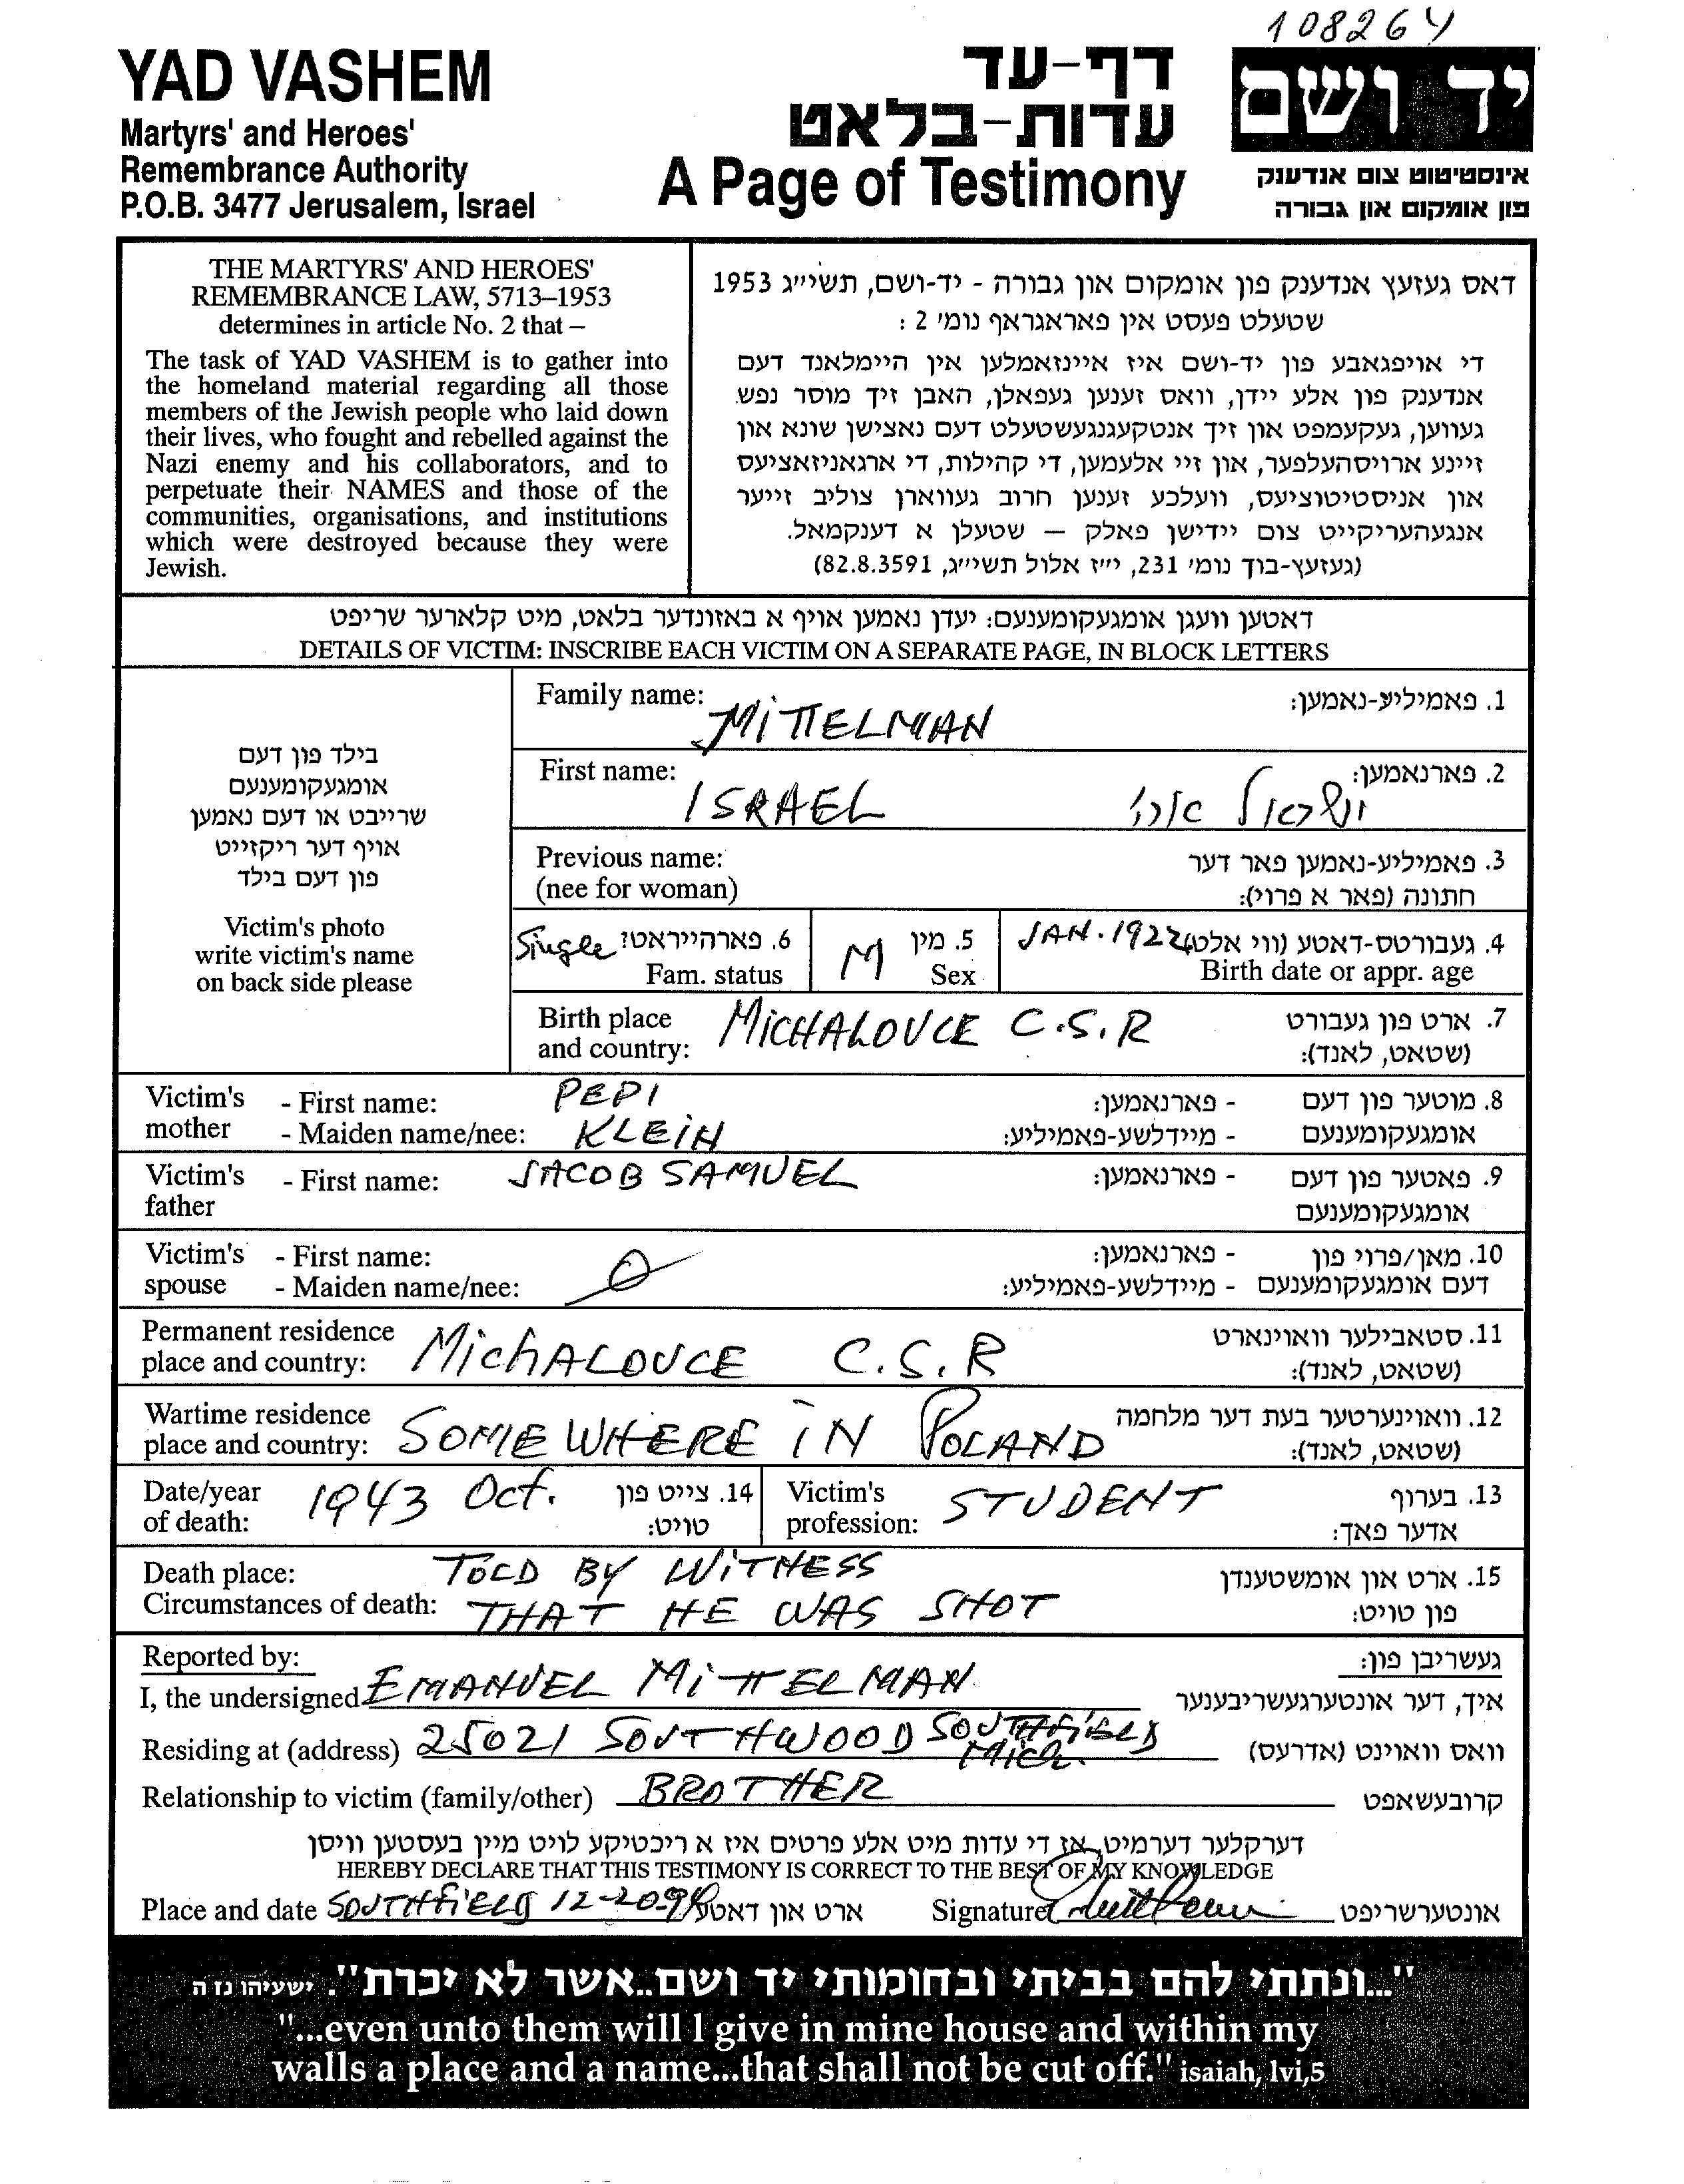 108264
YAD VASHEM
Martyrs' and Heroes'
Remembrance Authority
P.O.B. 3477 Jerusalem, Israel
דף-עד
עדות-בלאט
A Page of Testimony
יד ושם
אינסטיטוט צום אנדענק
פון אומקום און גבורה
THE MARTYRS' AND HEROES'
REMEMBRANCE LAW, 5713–1953
determines in article No. 2 that –
The task of YAD VASHEM is to gather into
the homeland material regarding all those
members of the Jewish people who laid down
their lives, who fought and rebelled against the
Nazi enemy and his collaborators, and to
perpetuate their NAMES and those of the
communities, organisations, and institutions
which were destroyed because they were
Jewish.
דאס געזעץ אנדענק פון אומקום און גבורה - יד-ושם, תשי״ג 1953
שטעלט פעסט אין פאראגראף נומ' 2 :
די אויפגאבע פון יד-ושם איז איינזאמלען אין היימלאנד דעם
אנדענק פון אלע יידן, וואס זענען געפאלן, האבן זיך מוסר נפש
געווען, געקעמפט און זיך אנטקעגנגעשטעלט דעם נאצישן שונא און
זיינע ארויסהעלפער, און זיי אלעמען, די קהילות, די ארגאניזאציעס
און אניסטיטוציעס, וועלכע זענען חרוב געווארן צוליב זייער
אנגעהעריקייט צום יידישן פאלק — שטעלן א דענקמאל.
(געזעץ-בוך נומ' 231, י״ז אלול תשי״ג, 82.8.3591)
דאטען וועגן אומגעקומענעם: יעדן נאמען אויף א באזונדער בלאט, מיט קלארער שריפט
DETAILS OF VICTIM: INSCRIBE EACH VICTIM ON A SEPARATE PAGE, IN BLOCK LETTERS
בילד פון דעם
אומגעקומענעם
שרייבט או דעם נאמען
אויף דער ריקזייט
פון דעם בילד
Victim's photo
write victim's name
on back side please
Family name: MITTELMAN 1. פאמיליע-נאמען:
First name: ISRAEL ישראל 2. פארנאמען:
Previous name: 3. פאמיליע-נאמען פאר דער
(nee for woman) חתונה (פאר א פרוי):
Single 6. פארהייראט? M 5. מין JAN. 1922 4. געבורטס-דאטע (ווי אלט)
Fam. status Sex Birth date or appr. age
Birth place MICHALOVCE C.S.R 7. ארט פון געבורט
and country: (שטאט, לאנד):
Victim's - First name: PEPI - פארנאמען: 8. מוטער פון דעם
mother - Maiden name/nee: KLEIN - מיידלשע-פאמיליע: אומגעקומענעם
Victim's - First name: JACOB SAMUEL - פארנאמען: 9. פאטער פון דעם
father אומגעקומענעם
Victim's - First name: - פארנאמען: 10. מאן/פרוי פון
spouse - Maiden name/nee: - מיידלשע-פאמיליע: דעם אומגעקומענעם
Permanent residence MICHALOVCE C.S.R 11. סטאבילער וואוינארט
place and country: (שטאט, לאנד):
Wartime residence SOMEWHERE IN POLAND 12. וואוינערטער בעת דער מלחמה
place and country: (שטאט, לאנד):
Date/year 1943 Oct. 14. צייט פון Victim's STUDENT 13. בערוף
of death: טויט: profession: אדער פאך:
Death place: TOLD BY WITNESS 15. ארט און אומשטענדן
Circumstances of death: THAT HE WAS SHOT פון טויט:
Reported by: געשריבן פון:
I, the undersigned EMANUEL MITTELMAN איך, דער אונטערגעשריבענער
Residing at (address) 25021 SOUTHWOOD SOUTHFIELD Mich. וואס וואוינט (אדרעס)
Relationship to victim (family/other) BROTHER קרובעשאפט
דערקלער דערמיט, אז די עדות מיט אלע פרטים איז א ריכטיקע לויט מיין בעסטען וויסן
HEREBY DECLARE THAT THIS TESTIMONY IS CORRECT TO THE BEST OF MY KNOWLEDGE
Place and date SOUTHFIELD ארט און דאטע Signature אונטערשריפט
"...ונתתי להם בביתי ובחומותי יד ושם..אשר לא יכרת". ישעיהו נז ה
"...even unto them will I give in mine house and within my
walls a place and a name...that shall not be cut off." isaiah, lvi,5